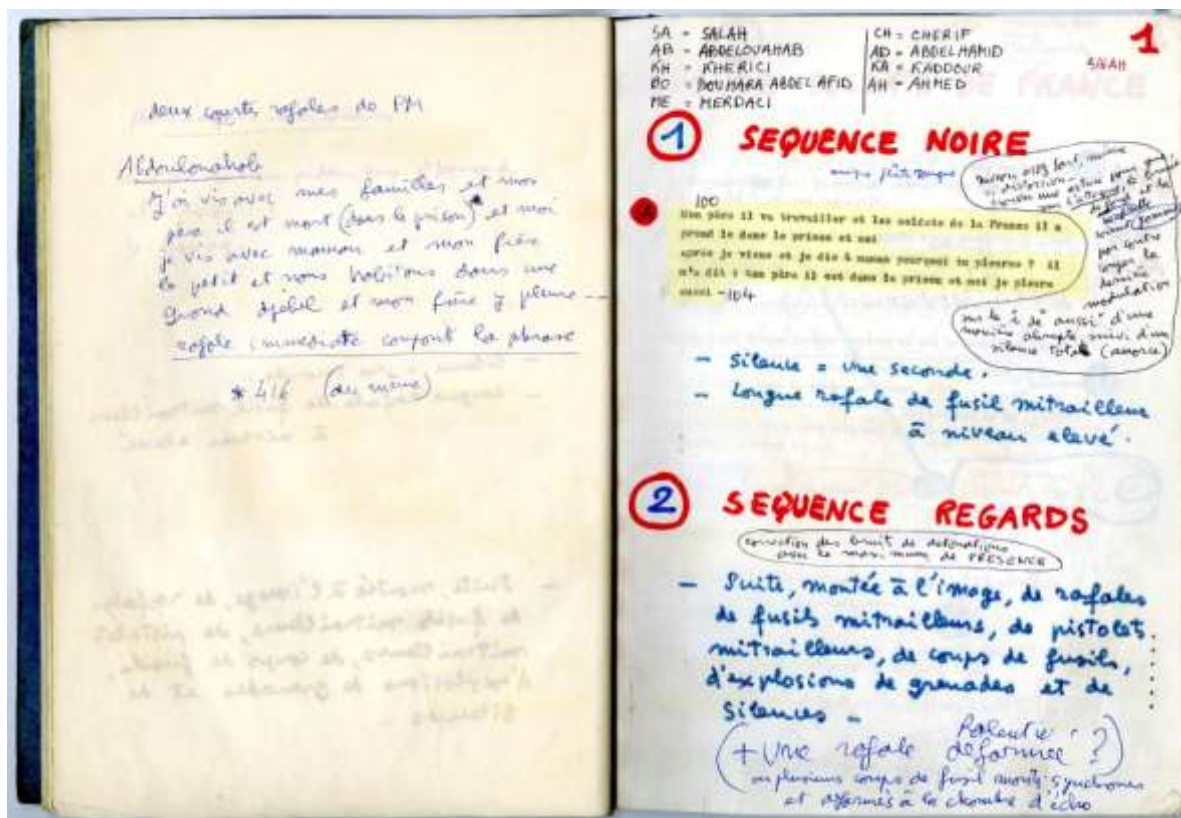 deux courtes rafales de PM
Abdoulouahab
J'ai vis avec mes familles et mon
père il est mort (dans le prison) et moi
je vis avec maman et mon frère
le petit et nous habitons dans une
grand djebel et mon frère y pleure --
rafale immédiate coupant la phrase
* 416 (du même)
SA = SALAH
AB = ABDELOUAHAB
KH = KHERICI
BO = BOUHARA ABDEL AFID
ME = MERDACI
CH = CHERIF
AD = ABDELHAMID
KA = KADDOUR
AH = AHMED
1
SALAH
1 SEQUENCE NOIRE
100
Mon père il va travailler et les soldats de la France il a
prend le dans le prison et moi
après je viens et je dis à maman pourquoi tu pleures ? il
m'a dit : ton père il est dans le prison et moi je pleure
aussi -104
par contre
couper la
dernière
modulation
sur le i de "aussi" d'une
manière abrupte, suivi d'un
silence total (amorce)
- Silence = une seconde.
- Longue rafale de fusil mitrailleur
à niveau elevé.
2 SEQUENCE REGARDS
correction des bruit de detonations
avec le maximum de PRESENCE
- Suite, montée à l'image, de rafales
de fusils mitrailleurs, de pistolets
mitrailleurs, de coups de fusils,
d'explosions de grenades et de
silences -
Ralentie
(+ Une rafale deformée ?)
ou plusieurs coups de fusil montés synchrones
et déformés à la chambre d'écho